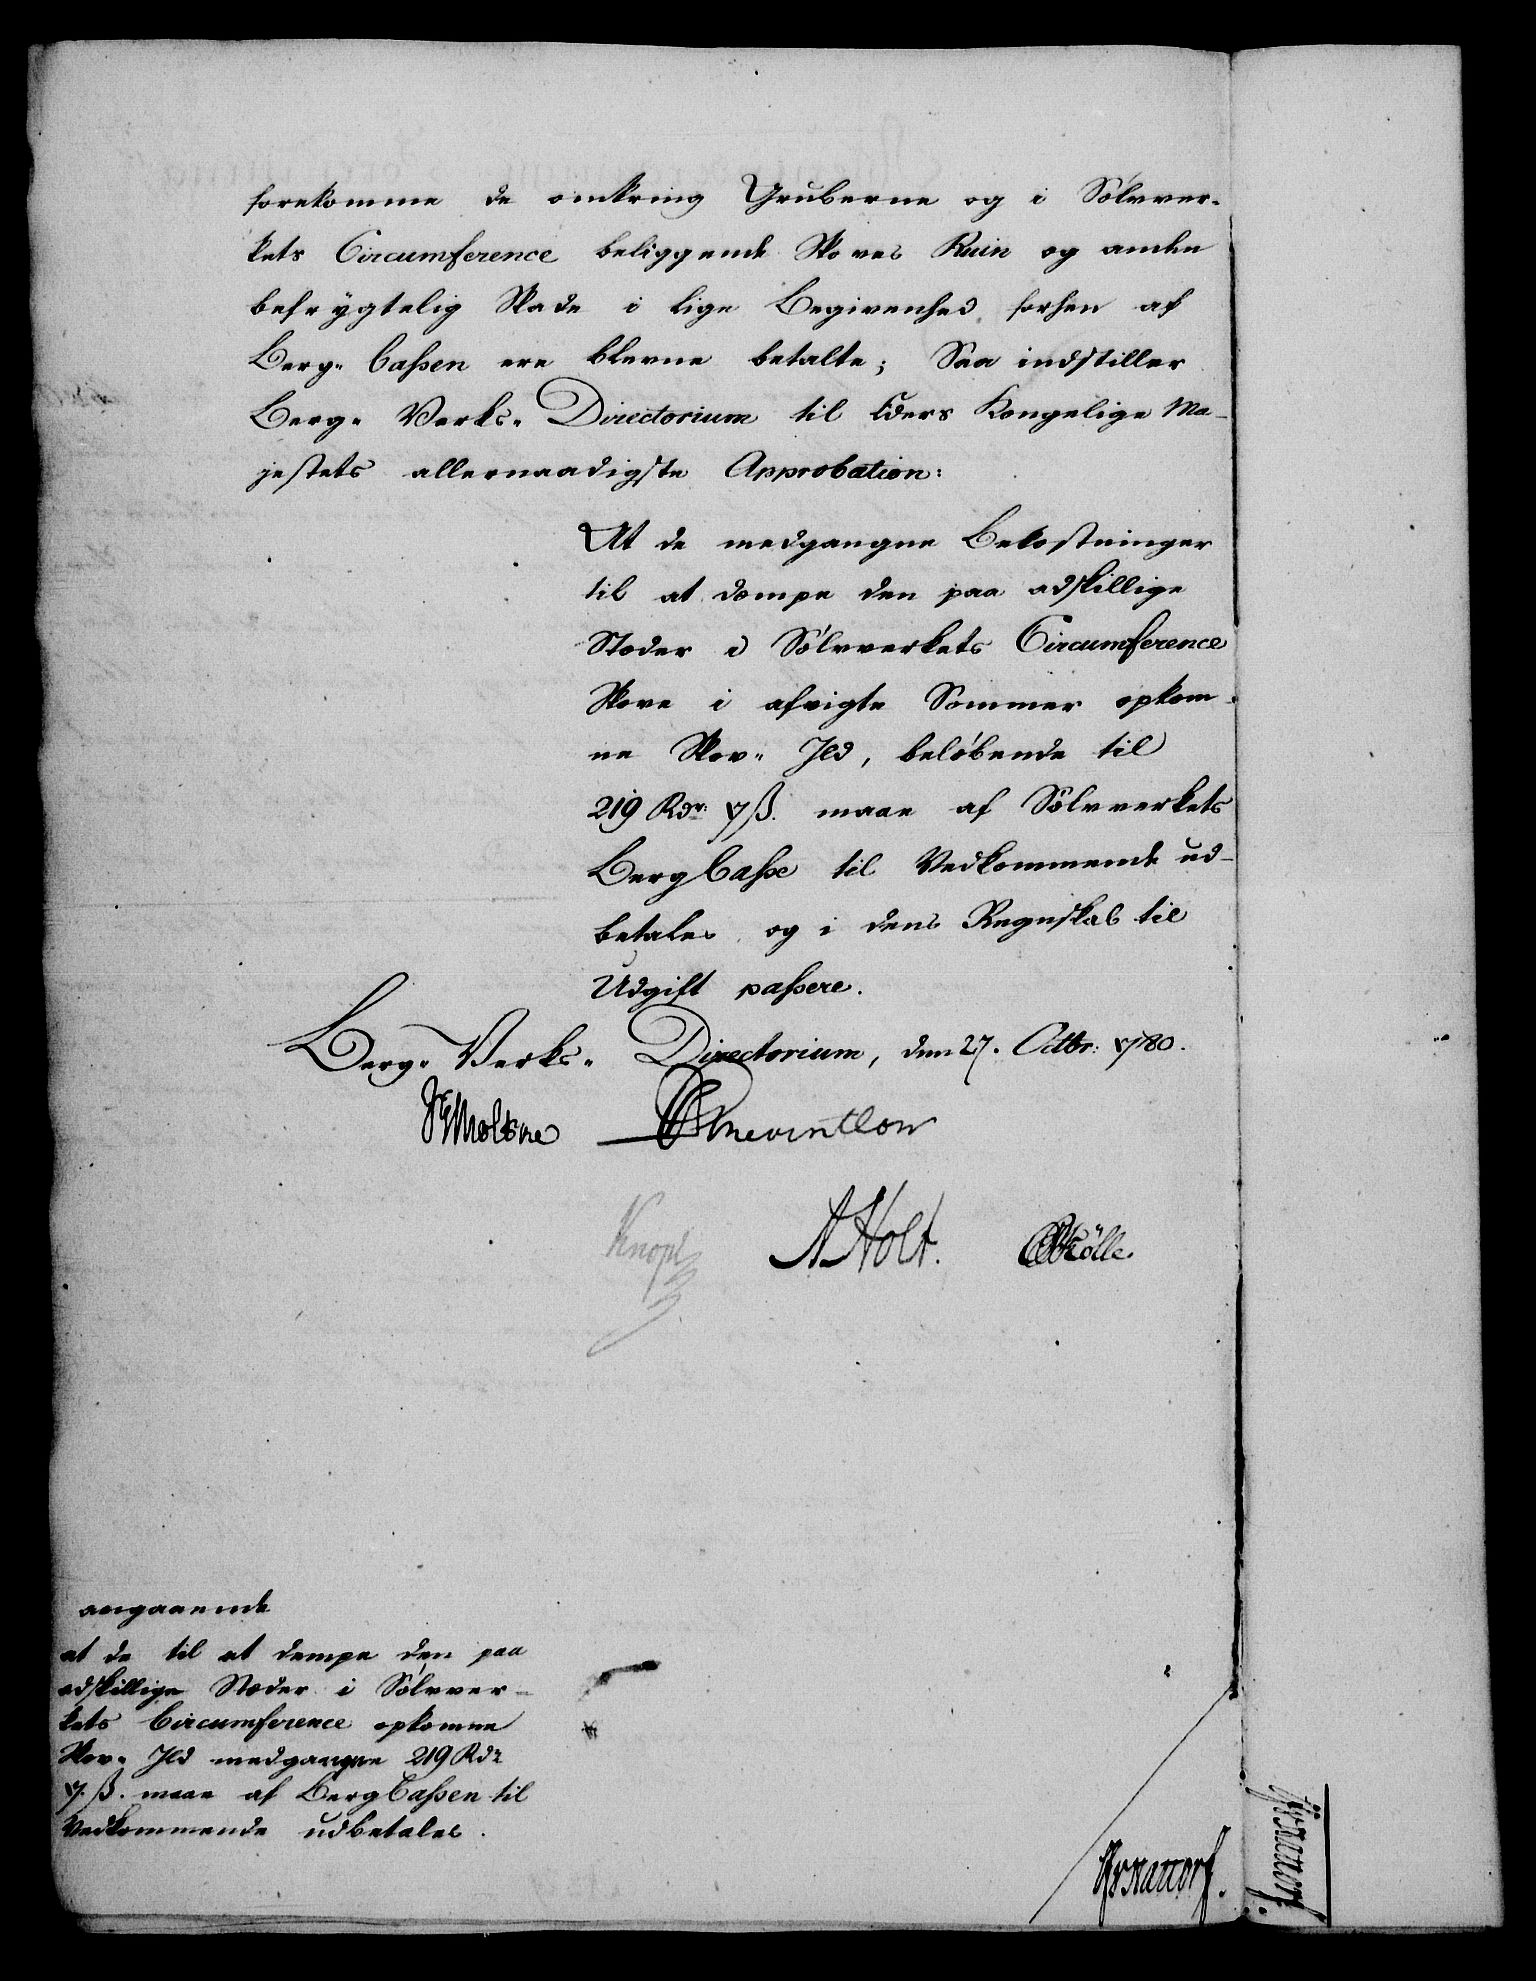 forekomme de omkring Gruberne og i Sölvver-
kets Circumference beliggende Skoves Ruin og anden
befrygtelig Skade i lige Begivenhed forhen af
Berg-Cassen ere blevne betalte; Saa indstiller
Berg-Verks-Directorium til Eders Kongelige Ma-
jestets allernaadigste Approbation:
At de medgangne Bekostninger
til at dempe den paa adskillige
Steder i Sölvverkets Circumference
Skove i afvigte Sommer opkom-
ne Skov-Jld, belöbende til
219 Rdr. 7 ß. maae af Sölvverkets
Berg Casse til Vedkommende ud-
betales og i dens Regnskab til
Udgift passere.
Berg-Verks-Directorium, den 27. Octbr: 1780.
Moltke Reventlow
Knoph A Holt.
angaaende
at de til at dempe den paa
adskillige Steder i Sölvver-
kets Circumference opkomne
Skov-Jld medgangne 219 Rdr
7. ß. maae af Berg Cassen til
Vedkommende udbetales.